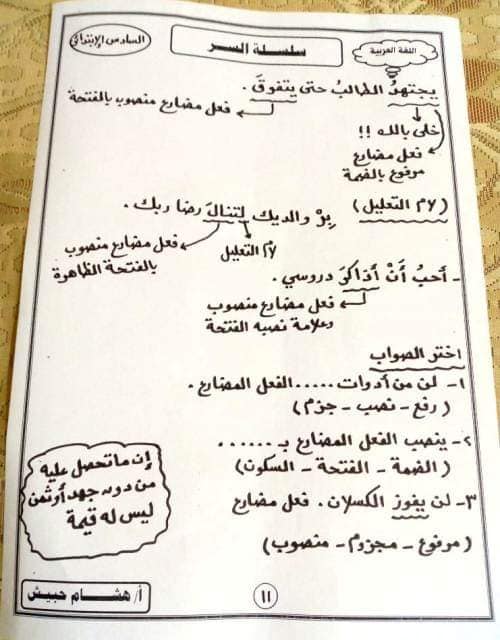 اللغة العربية
سلسلة السر
السادس الإبتدائي
يجتهدُ الطالبُ حتى يتفوقَ .
فعل مضارع منصوب بالفتحة
خلى بالك !!
فعل مضارع
مرفوع بالضمة
(لام التعليل)
بِرْ والديك لتنالَ رضا ربك .
لام التعليل
فعل مضارع منصوب
بالفتحة الظاهرة
- أحبُ أنْ أذاكرَ دروسي .
فعل مضارع منصوب
وعلامة نصبه الفتحة
اختر الصواب
١- لن من أدوات ..... الفعل المضارع .
(رفع - نصب - جزم)
٢- ينصب الفعل المضارع بـ ......
(الضمة - الفتحة - السكون)
٣- لن يفوز الكسلان . فعل مضارع
(مرفوع - مجزوم - منصوب)
إن ما تحصل عليه
من دون جهد أو ثمن
ليس له قيمة
١١
أ/ هشام حبيش